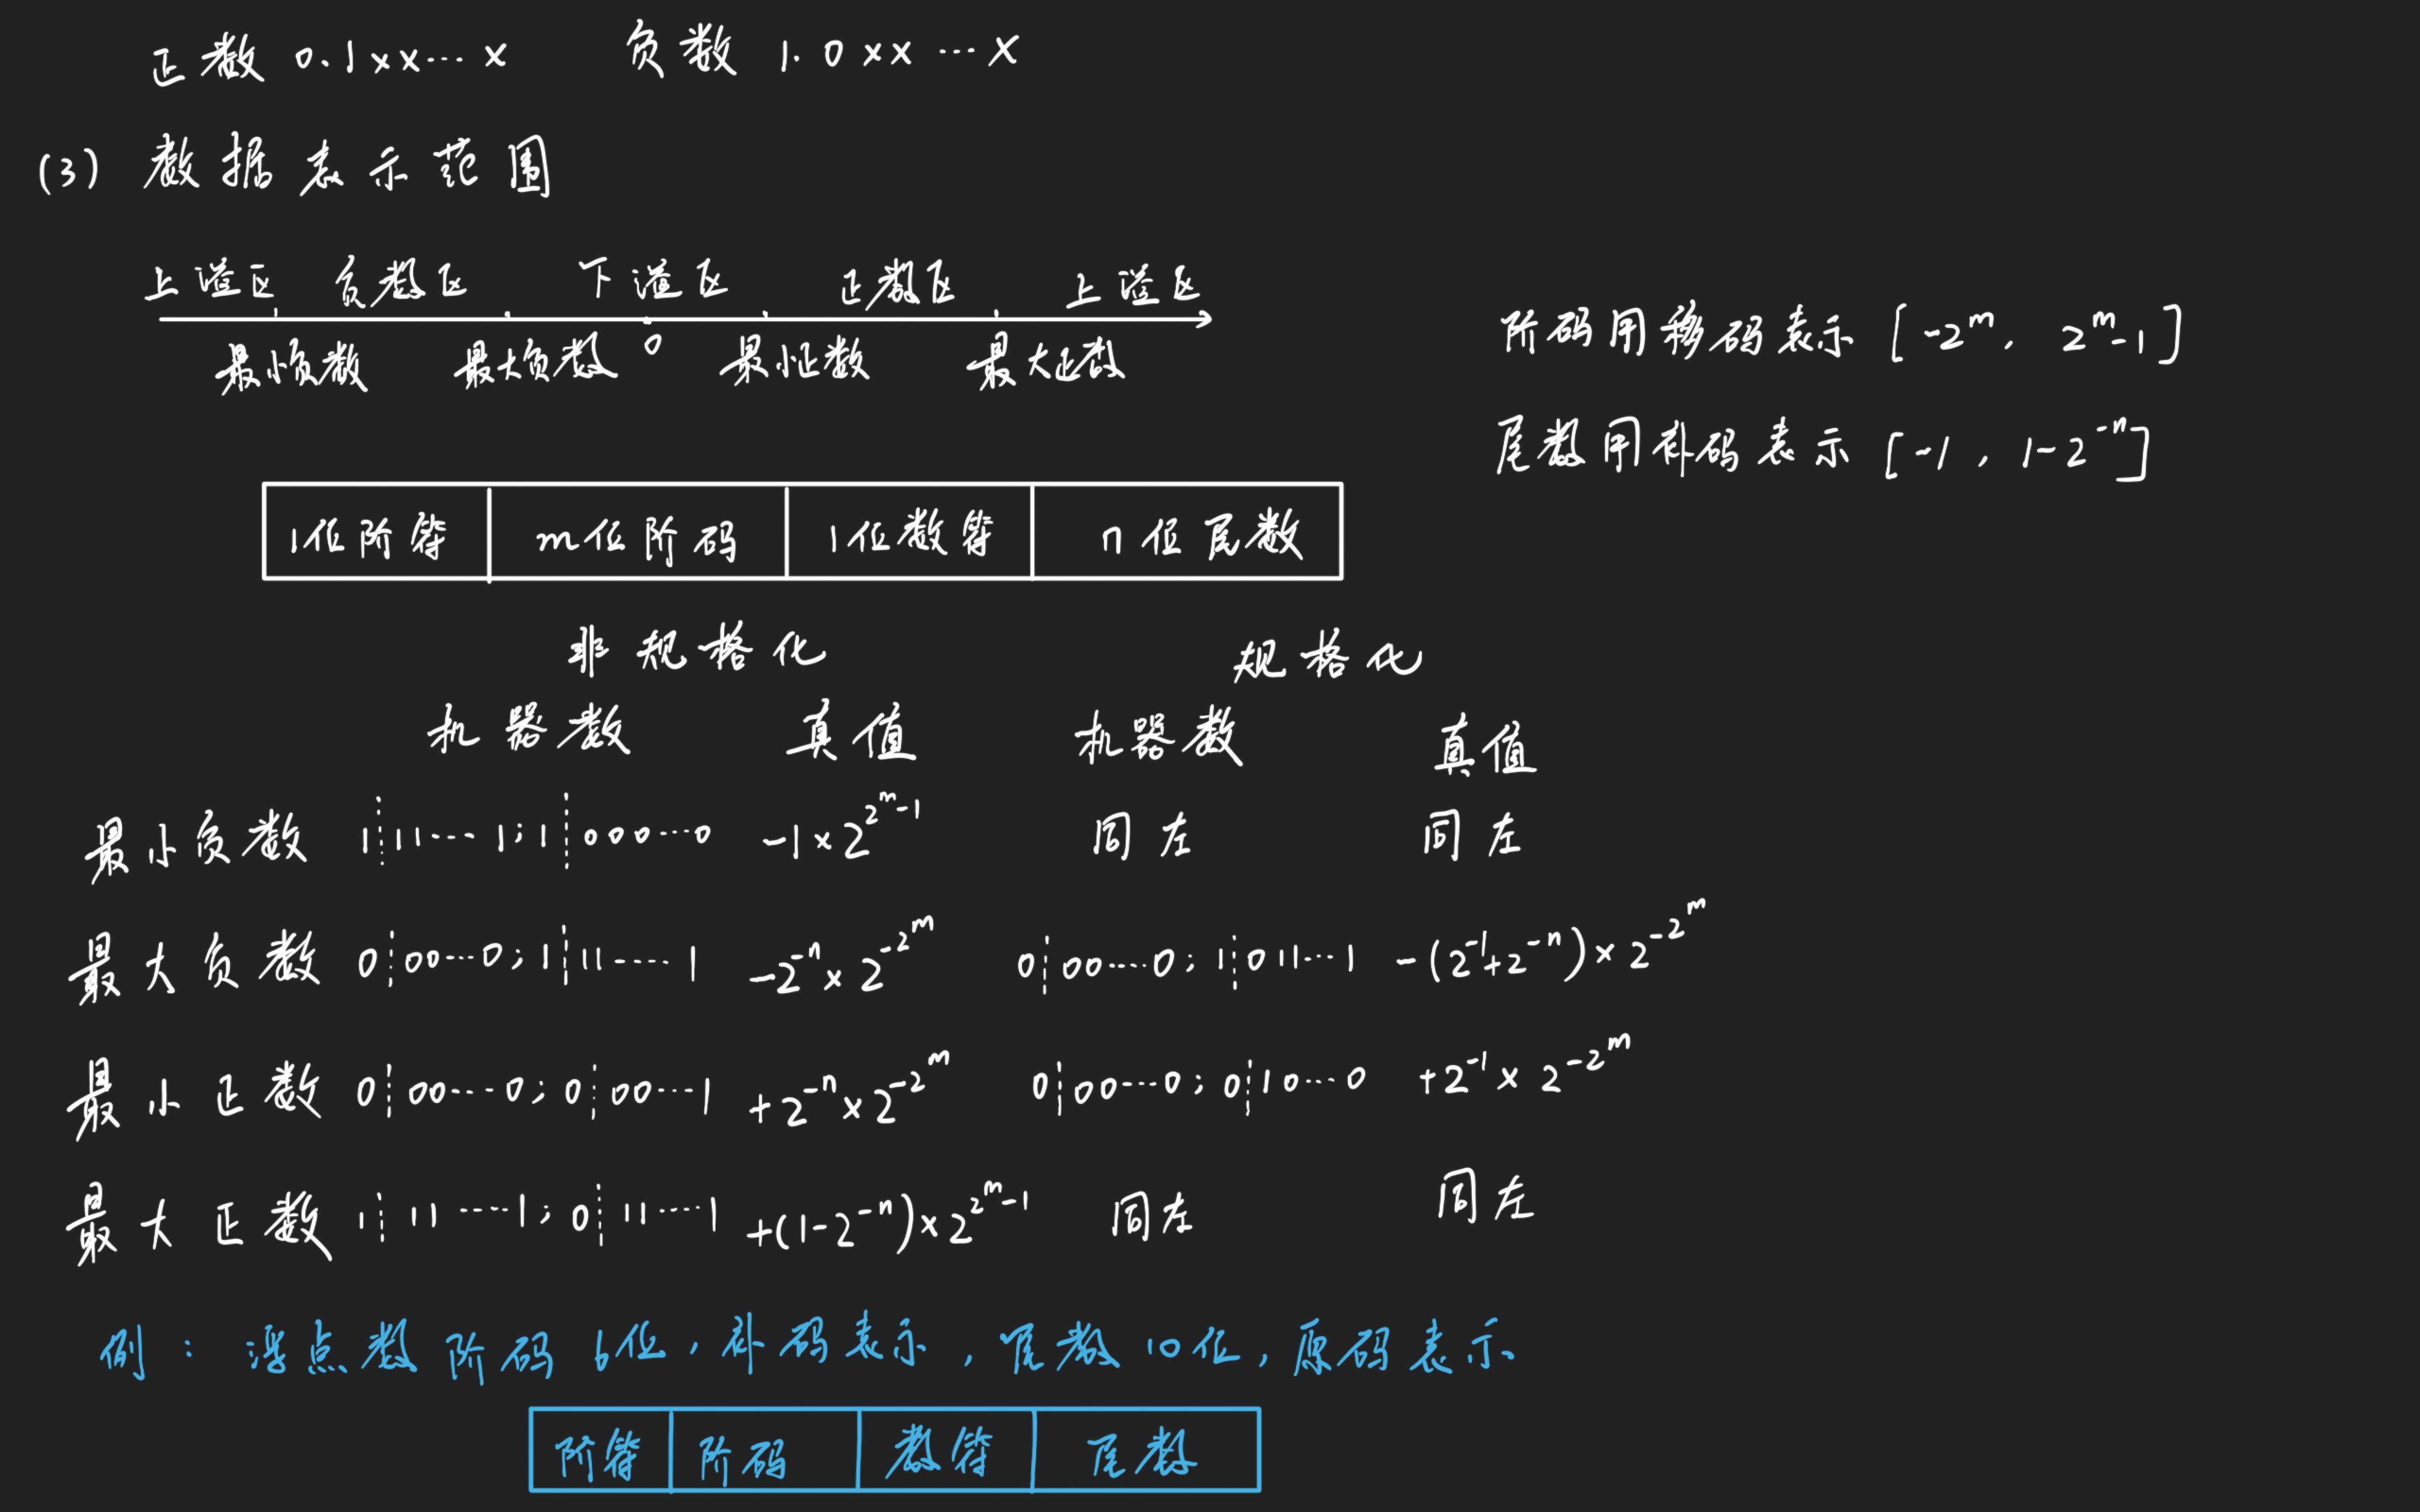 正数 0.1xx…x 负数 1.0xx…x
(3) 数据表示范围
上溢区 负数区 下溢区 正数区 上溢区
最小负数 最大负数 0 最小正数 最大正数
阶码用移码表示 [-2^m, 2^m-1]
尾数用补码表示 [-1, 1-2^-n]
1位阶符 m位阶码 1位数符 n位尾数
非规格化 规格化
机器数 真值 机器数 真值
最小负数 1┊11…1;1┊000…0 -1×2^(2^m-1) 同左 同左
最大负数 0┊00…0;1┊11…1 -2^-n×2^(-2^m) 0┊00…0;1┊011…1 -(2^-1+2^-n)×2^(-2^m)
最小正数 0┊00…0;0┊00…1 +2^-n×2^(-2^m) 0┊00…0;0┊10…0 +2^-1×2^(-2^m)
最大正数 1┊11…1;0┊11…1 +(1-2^-n)×2^(2^m-1) 同左 同左
例:浮点数阶码6位,补码表示,尾数10位,原码表示
阶符 阶码 数符 尾数